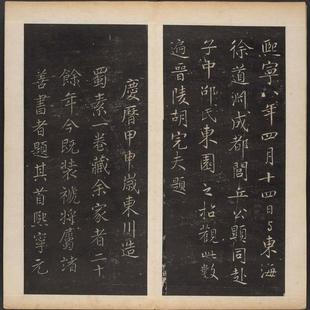 熙寧八年四月十四日與東海
徐道淵成都閭丘公顯同赴
子中邵氏東園之招觀此數
過晉陵胡完夫題
慶曆甲申歲東川造
蜀素一卷藏余家者二十
餘年今既裝褫將屬諸
善書者題其首熙寧元